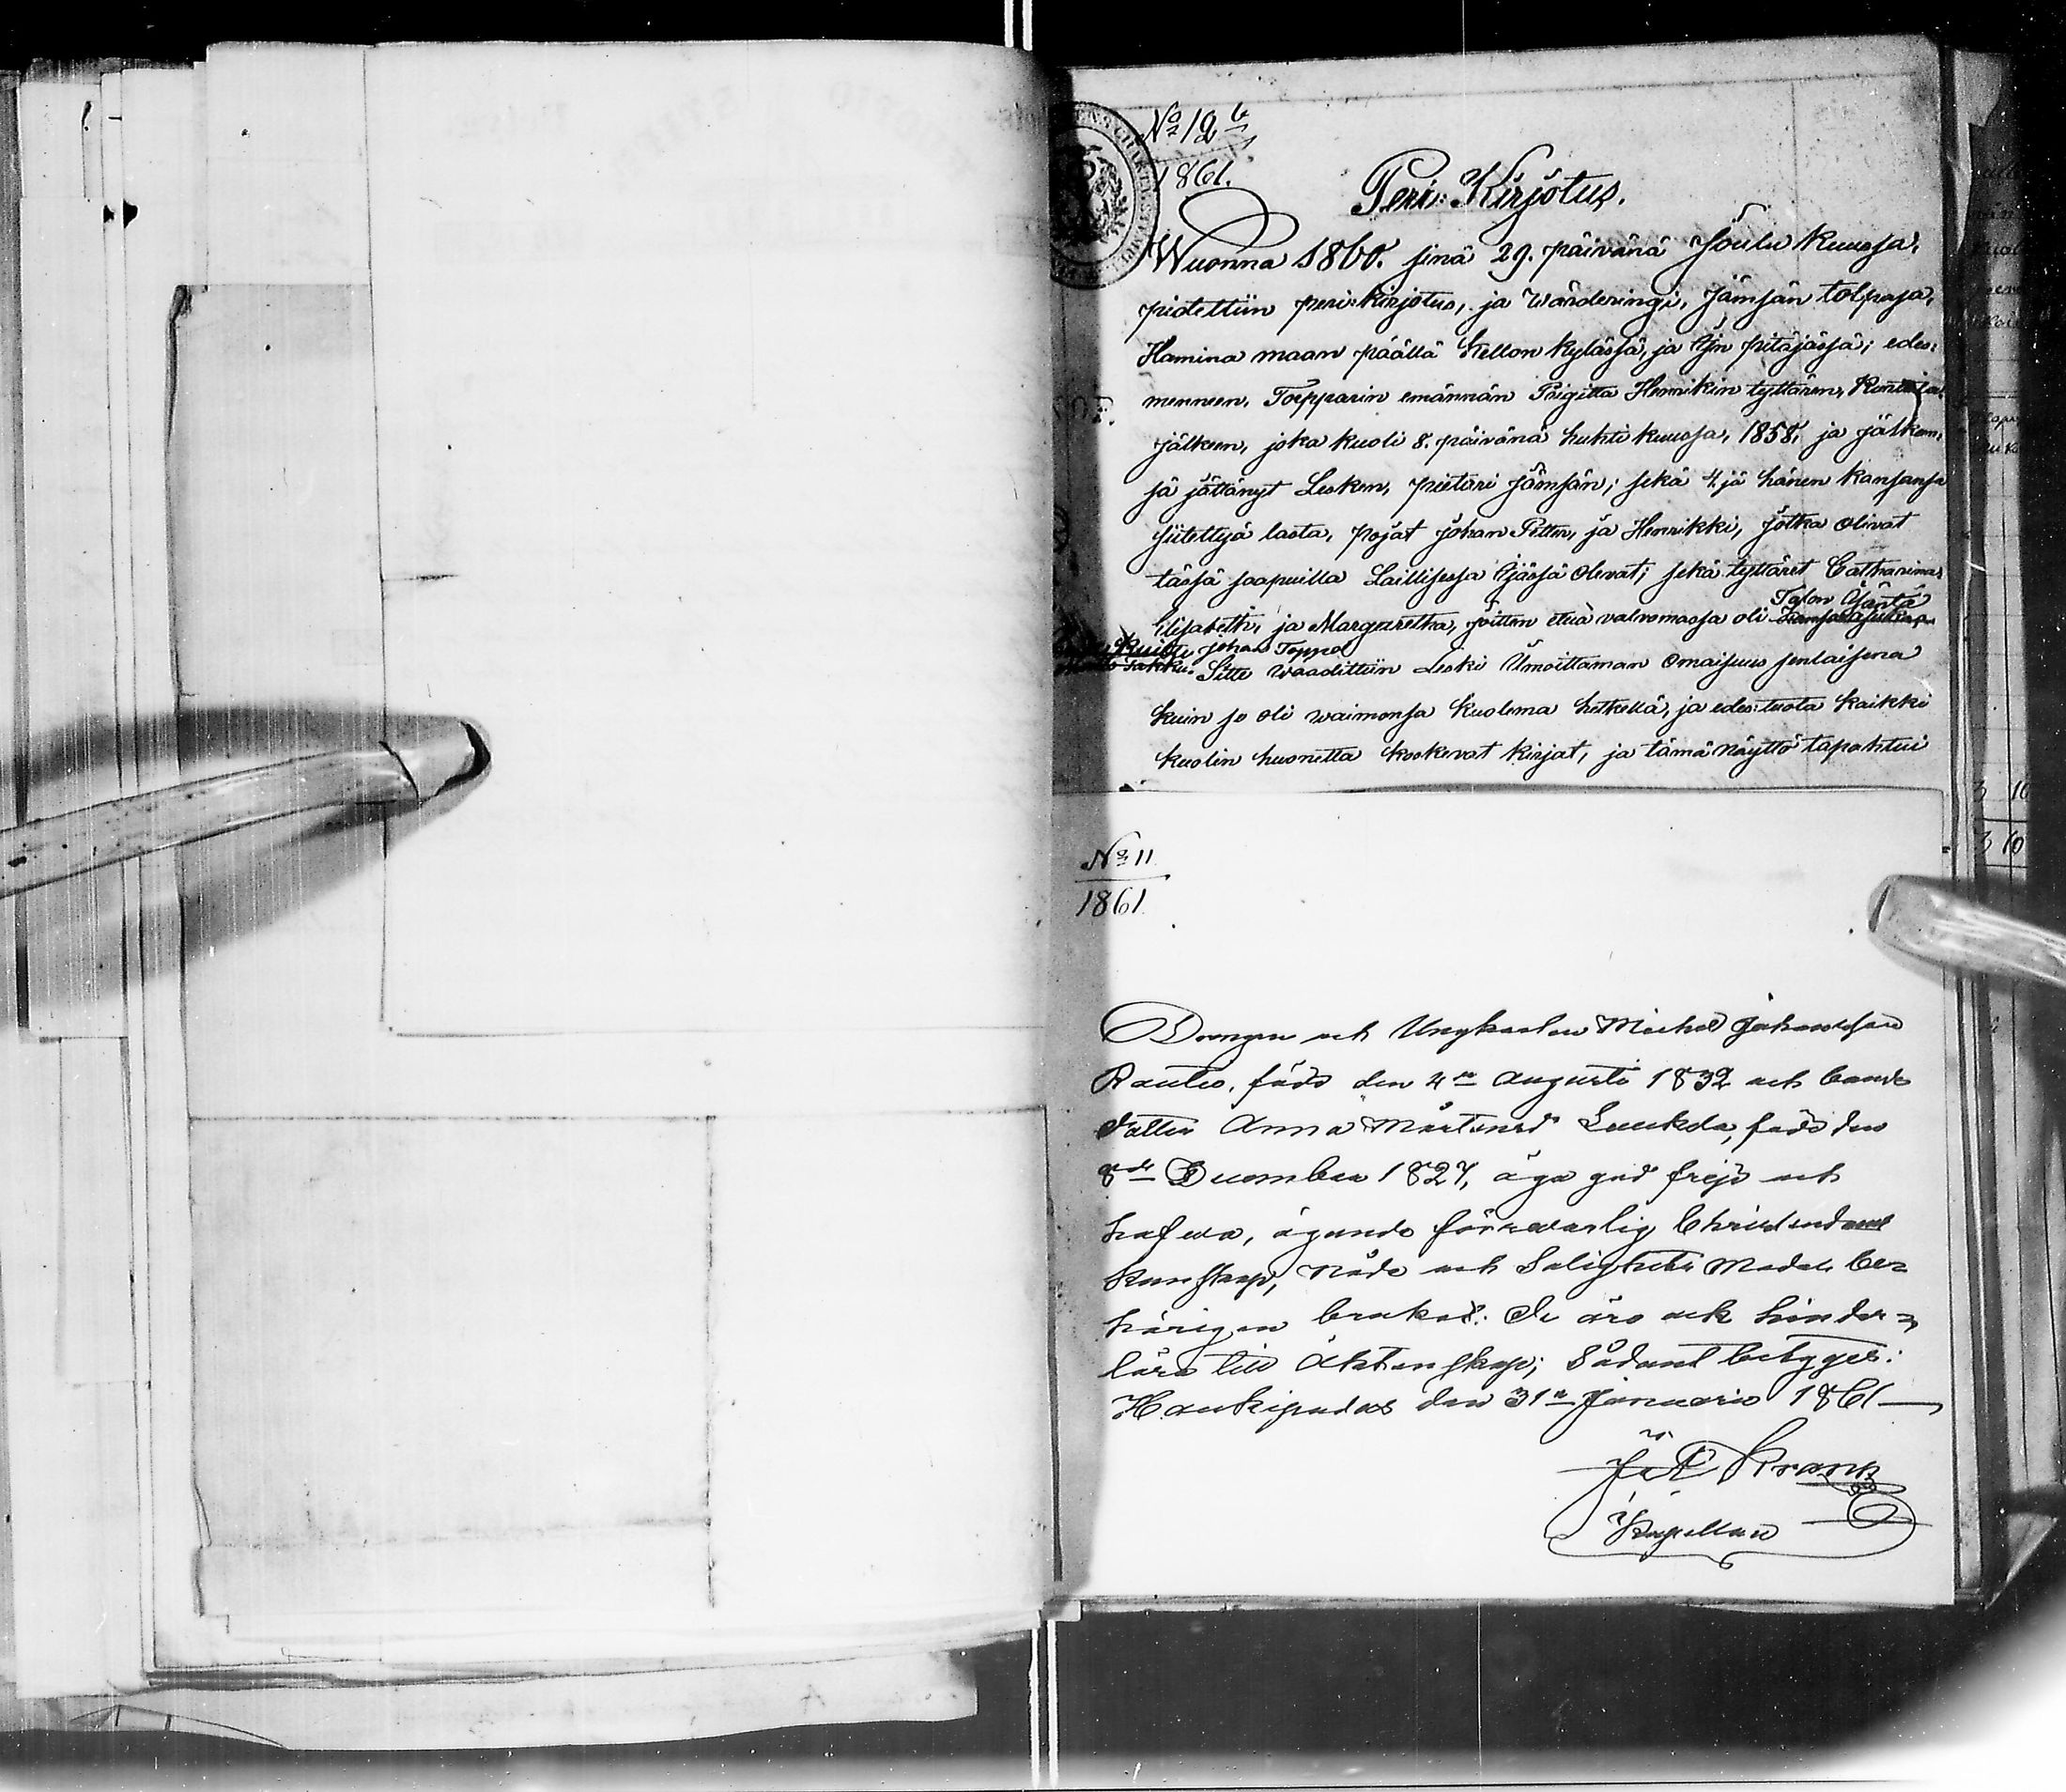 No 12 b
1861.
Peri: Kirjotus.
Wuonna 1860. sinä 29. päivänä Joulu kuussa,
pidettiin peri: kirjotus, ja wärderingi, Jämsän tolpasa,
Hamina maan päällä Kellon kylässä, ja Ijn pitäjässä; edes:
menneen, Torpparin emännän Prigitta Henrikin tyttären,
jälkeen, joka kuoli 8. päivänä huhti kuussa, 1858, ja jälkeen,
sä jättänyt Lesken, pietari Jämsän; sekä 4. jä hänen kansansa
siitettyä lasta, pojat Johan Petter, ja Henrikki, jotka olivat
tässä saapuilla Laillisessa Ijässä olevat; sekä tyttäret Catharina,
Talon Isäntä
Elisabeth, ja Margaretha, joitten etua valvomassa oli
Johan Toppo
Sitte waadittiin Leski Ilmoittaman Omaisuus senlaisena
kuin se oli waimonsa kuolema hetkellä, ja edes: tuota kaikki
kuolin huonetta koskevat kirjat, ja tämä näyttö tapahtui
No 11
1861.
Drengen och Ungkarlen Michel Johansson
Rautio, född den 4de Augusti 1832 och bonde
dotter Anna Mårtensd Luukela, född den
8de December 1827, äga god frejd och
hafwa, ägande försvarlig Christendoms
kunskap, Nåde och Salighets Medel be-
hörigen brukat: De äro ock hinder-
löse till Äktenskap; Sådant betygges:
Haukipudas den 31a Januarii 1861
J. A. Krank
Kapellan